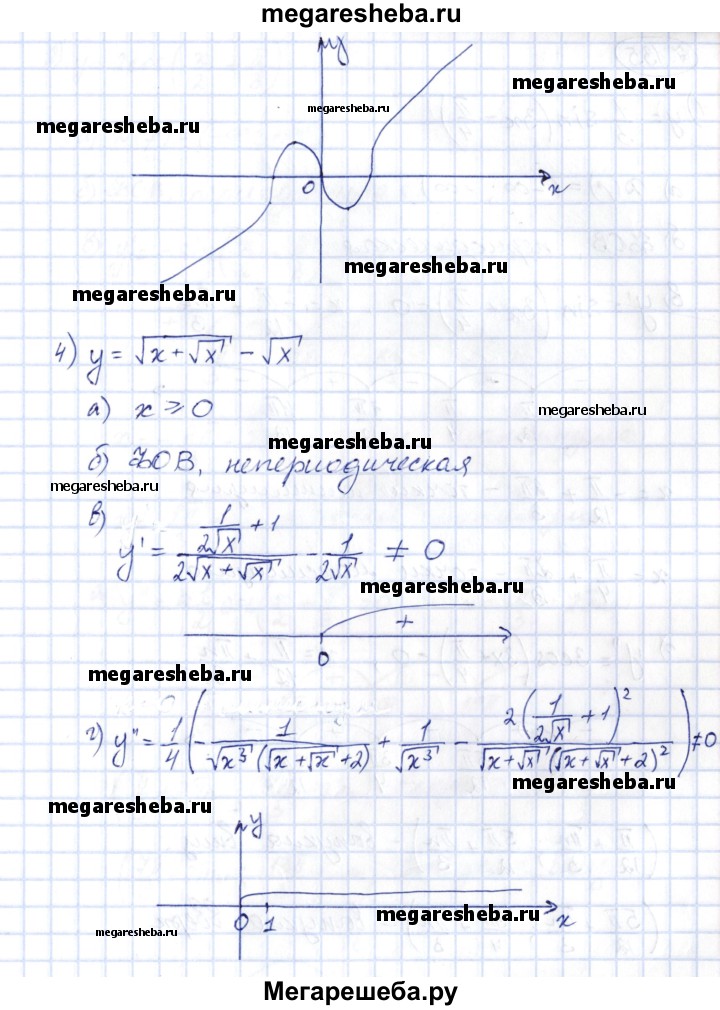 megaresheba.ru
y
megaresheba.ru
megaresheba.ru
megaresheba.ru
0
x
megaresheba.ru
megaresheba.ru
4) y = √(x + √x) - √x
а) x ≥ 0
megaresheba.ru
megaresheba.ru
б) ФОВ, непериодическая
megaresheba.ru
в) y' = (1/(2√x) + 1)/(2√(x + √x)) - 1/(2√x) ≠ 0
megaresheba.ru
+
0
megaresheba.ru
г) y'' = 1/4 (- 1/(√x³ (√(x + √x) + 2)) + 1/√x³ - 2(1/(2√x) + 1)²/(√(x + √x) (√(x + √x) + 2)²)) ≠ 0
megaresheba.ru
megaresheba.ru
y
megaresheba.ru
0 1
x
megaresheba.ru
Мегарешеба.ру